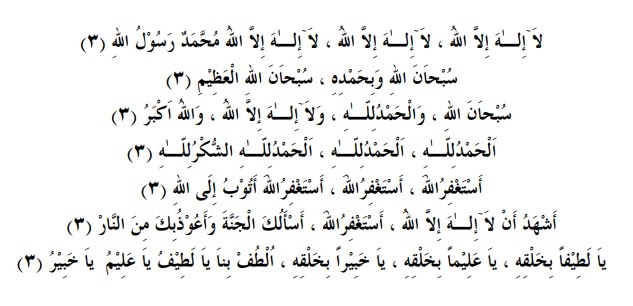 لَآ إِلـٰـهَ إِلاَّ اللهُ ، لَآ إِلـٰـهَ إِلاَّ اللهُ ، لَآ إِلـٰـهَ إِلاَّ اللهُ مُحَمَّدٌ رَسُوْلُ اللهِ (٣)
سُبْحاَنَ اللهِ وَبِحَمْدِهِ ، سُبْحاَنَ اللهِ الْعَظِيْمِ (٣)
سُبْحاَنَ اللهِ ، وَالْحَمْدُلِلّـٰـهِ ، وَلَآ إِلـٰـهَ إِلاَّ اللهُ ، وَاللهُ اَكْبَرُ (٣)
اَلْحَمْدُلِلّـٰـهِ ، اَلْحَمْدُلِلّـٰـهِ ، اَلْحَمْدُلِلّـٰـهِ الشُّكْرُلِلّـٰـهِ (٣)
أَسْتَغْفِرُاللهَ ، أَسْتَغْفِرُاللهَ ، أَسْتَغْفِرُاللهَ أَتُوْبُ إِلَى اللهِ (٣)
أَشْهَدُ أَنْ لَآ إِلـٰـهَ إِلاَّ اللهُ ، أَسْتَغْفِرُاللهَ ، أَسْأَلُكَ الْجَنَّةَ وَأَعُوْذُبِكَ مِنَ النَّارْ (٣)
ياَ لَطِيْفاً بِخَلْقِهِ ، ياَ عَلِيْماً بِخَلْقِهِ ، ياَ خَبِيْراً بِخَلْقِهِ ، اُلْطُفْ بِناَ ياَ لَطِيْفُ ياَ عَلِيْمُ ياَ خَبِيْرُ (٣)